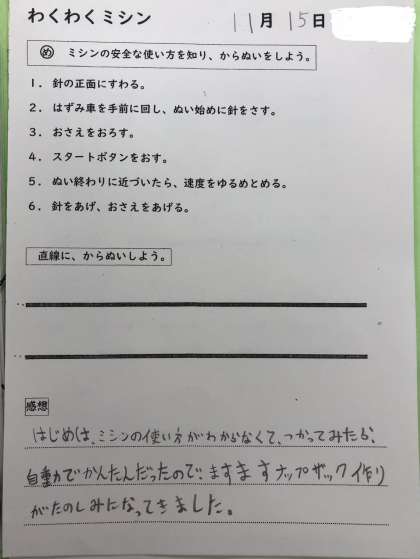 わくわくミシン 11月15日
め ミシンの安全な使い方を知り、からぬいをしよう。
1. 針の正面にすわる。
2. はずみ車を手前に回し、ぬい始めに針をさす。
3. おさえをおろす。
4. スタートボタンをおす。
5. ぬい終わりに近づいたら、速度をゆるめとめる。
6. 針をあげ、おさえをあげる。
直線に、からぬいしよう。
感想
はじめは、ミシンの使い方がわからなくて、つかってみたら、
自動でかんたんだったので、ますますナップザック作り
がたのしみになってきました。